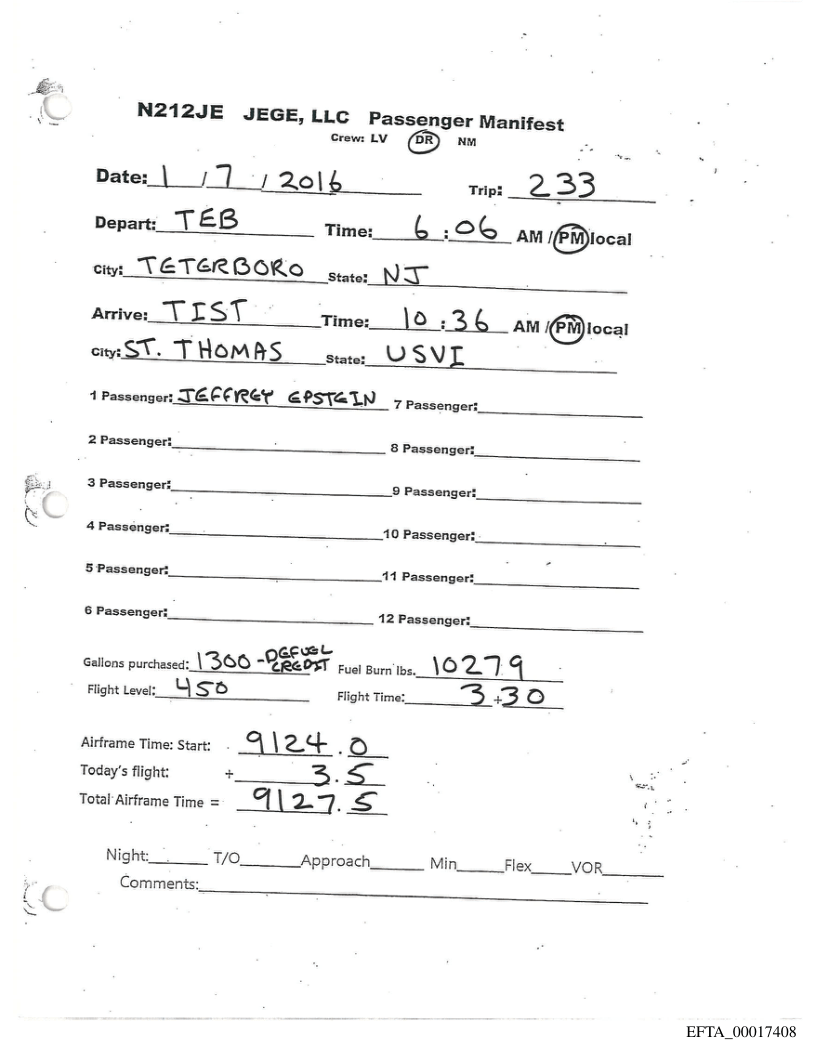 N212JE JEGE, LLC Passenger Manifest
Crew: LV DR NM
Date: 1 / 7 / 2016 Trip: 233
Depart: TEB Time: 6:06 AM / PM local
City: TETERBORO State: NJ
Arrive: TIST Time: 10:36 AM / PM local
City: ST. THOMAS State: USVI
1 Passenger: JEFFREY EPSTEIN 7 Passenger:
2 Passenger: 8 Passenger:
3 Passenger: 9 Passenger:
4 Passenger: 10 Passenger:
5 Passenger: 11 Passenger:
6 Passenger: 12 Passenger:
Gallons purchased: 1300 - DEFUEL CREDIT Fuel Burn lbs. 10279
Flight Level: 450 Flight Time: 3+30
Airframe Time: Start: 9124.0
Today's flight: + 3.5
Total Airframe Time = 9127.5
Night: T/O Approach Min Flex VOR
Comments:
EFTA_00017408